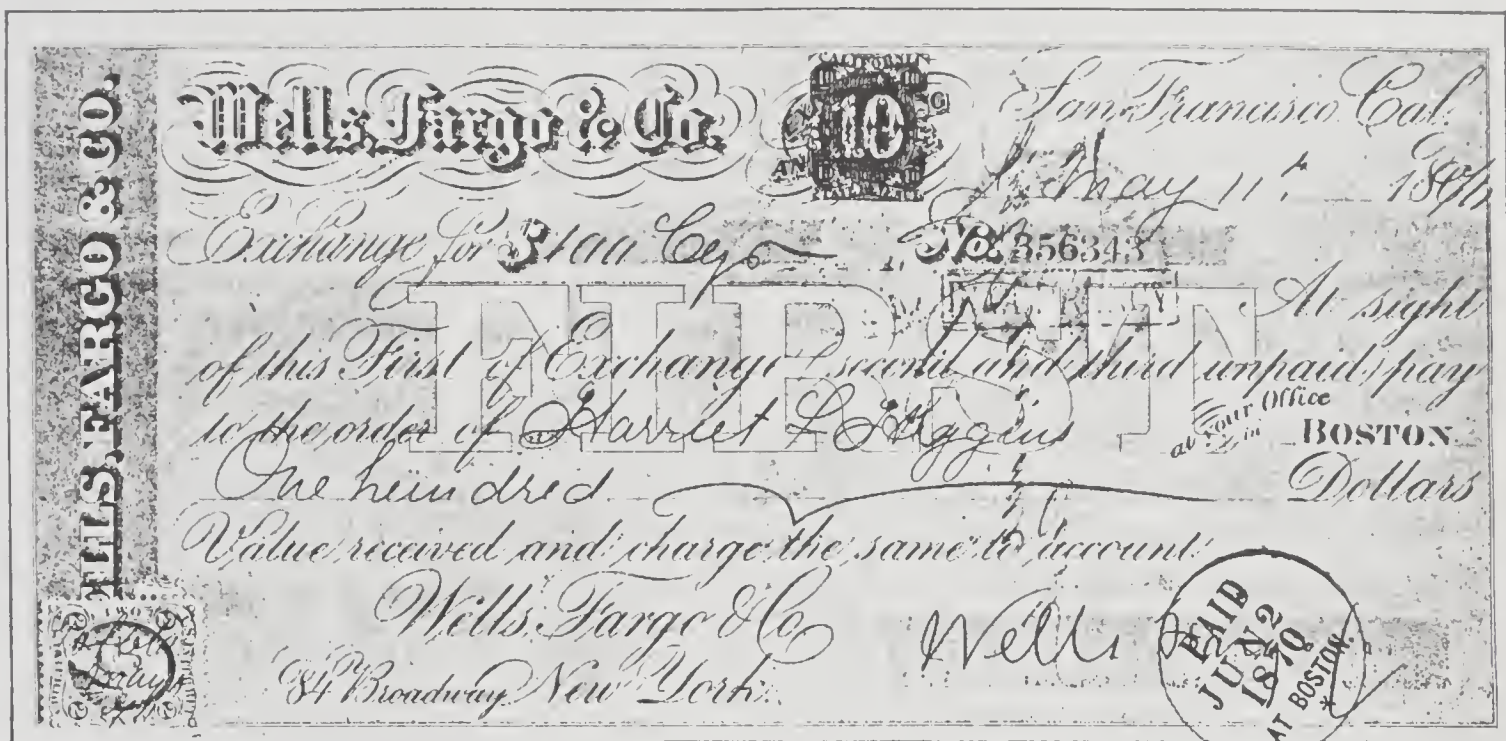 WELLS, FARGO & CO.
Wells, Fargo & Co.
CALIFORNIA
10
San Francisco Cal.
May 11th 1870
Exchange for $100 Cy
No. 356343
FIRST
At sight
of this First of Exchange (second and third unpaid) pay
to the order of Harriet L Higgins
at your Office in BOSTON
One hundred Dollars
Value received and charge the same to account
Wells, Fargo & Co
84 Broadway New York.
Wells
PAID
JUN 2
1870
AT BOSTON.